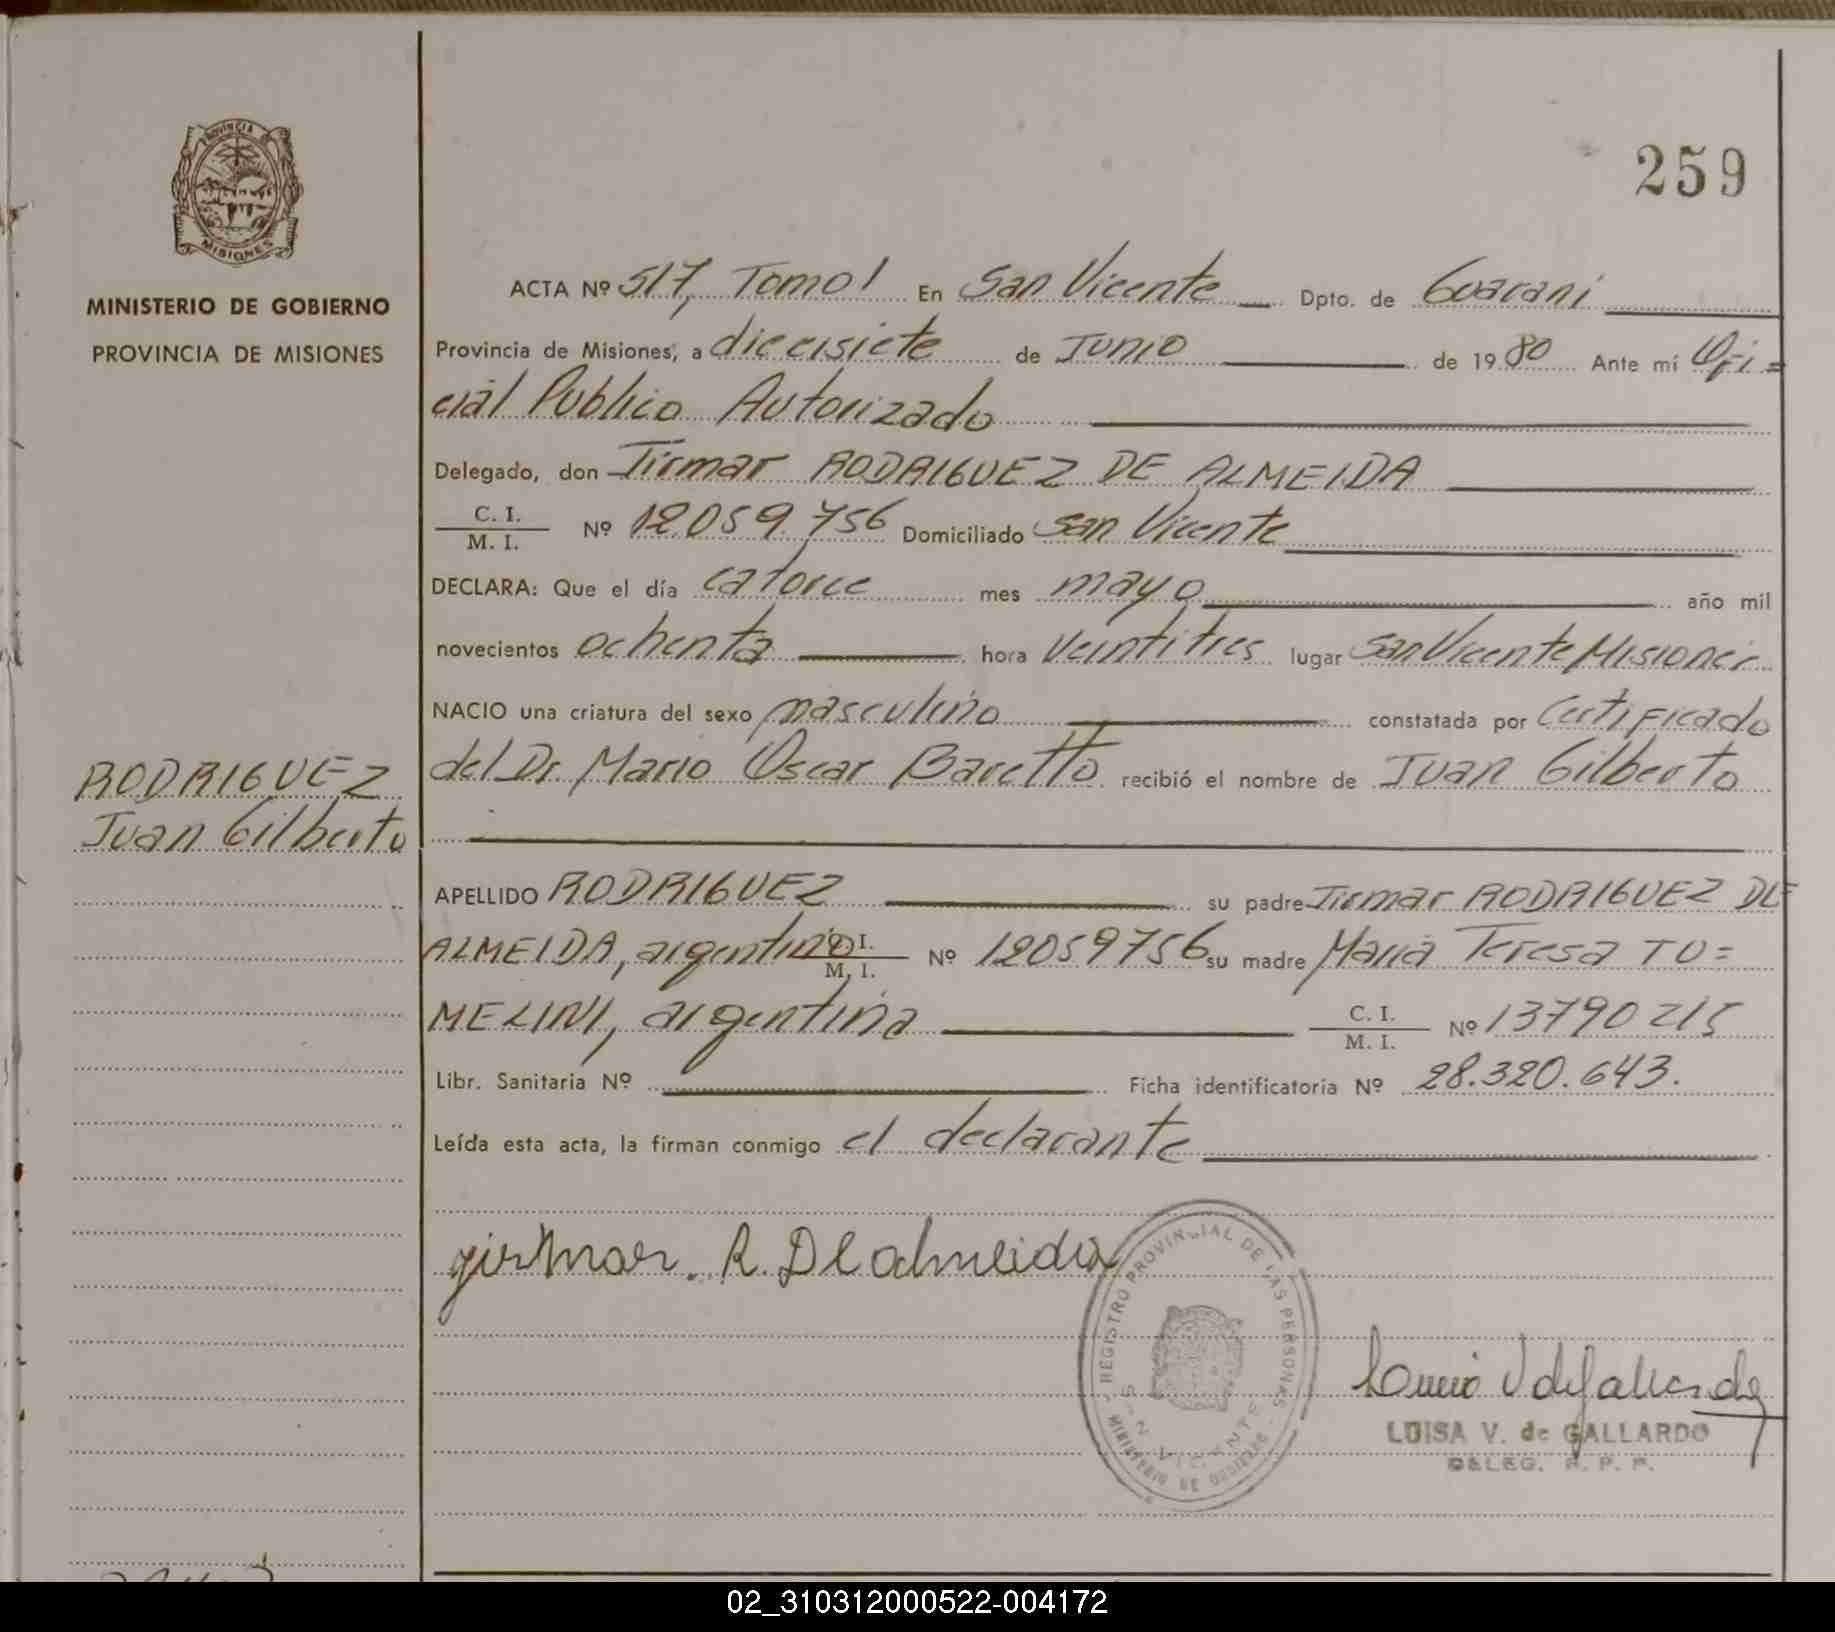 PROVINCIA
MISIONES
MINISTERIO DE GOBIERNO
PROVINCIA DE MISIONES
259
ACTA Nº 517, Tomo 1 En San Vicente Dpto. de Guarani
Provincia de Misiones, a diecisiete de Junio de 1980 Ante mí Ofi=
cial Publico Autorizado
Delegado, don Jirmar RODRIGUEZ DE ALMEIDA
C. I.
M. I. Nº 12.059.756 Domiciliado San Vicente
DECLARA: Que el día catorce mes mayo año mil
novecientos ochenta hora veintitres lugar San Vicente Misiones
NACIO una criatura del sexo masculino constatada por Certificado
del Dr. Mario Oscar Baretto recibió el nombre de Juan Gilberto
RODRIGUEZ
Juan Gilberto
APELLIDO RODRIGUEZ su padre Jirmar RODRIGUEZ DE
ALMEIDA, argentino C. I. M. I. Nº 12059756 su madre Maria Teresa TO=
MELINI, argentina C. I. M. I. Nº 13790215
Libr. Sanitaria Nº Ficha identificatoria Nº 28.320.643.
Leída esta acta, la firman conmigo el declarante
girmar. R. De almeida
REGISTRO PROVINCIAL DE LAS PERSONAS
MINISTERIO DE GOBIERNO
SAN VICENTE
LUISA V. de GALLARDO
DELEG. R. P. P.
02_310312000522-004172